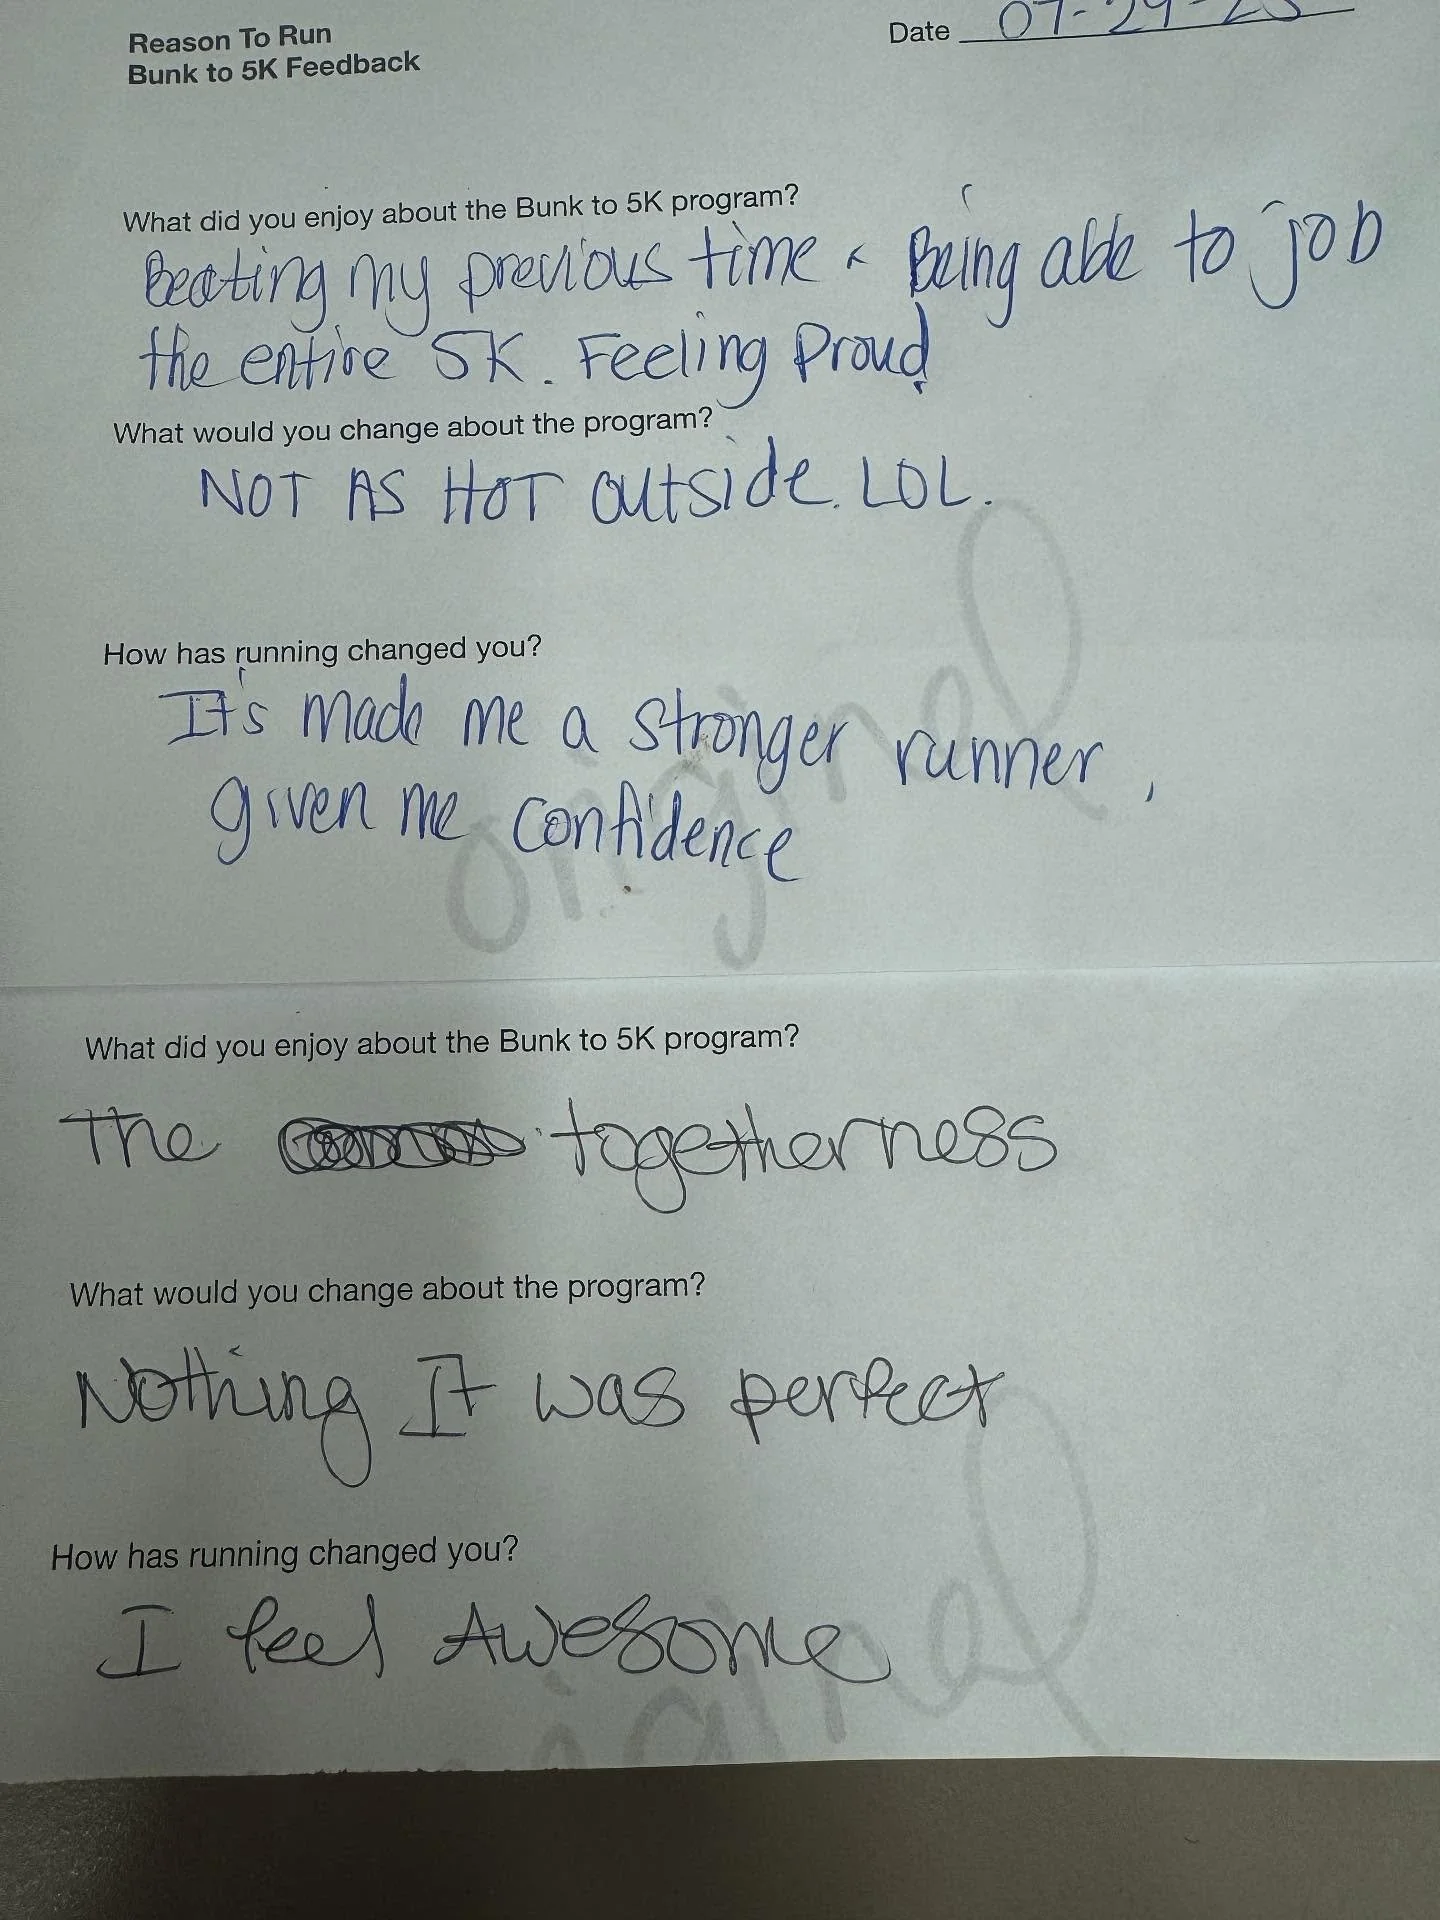 Reason To Run
Bunk to 5K Feedback
Date 07-29-25
What did you enjoy about the Bunk to 5K program?
Beating my previous time & Being able to job
the entire 5K. Feeling Proud!
What would you change about the program?
NOT AS HOT outside. LOL.
How has running changed you?
It's made me a stronger runner,
given me confidence
original
What did you enjoy about the Bunk to 5K program?
The togetherness
What would you change about the program?
Nothing It was perfect
How has running changed you?
I feel Awesome